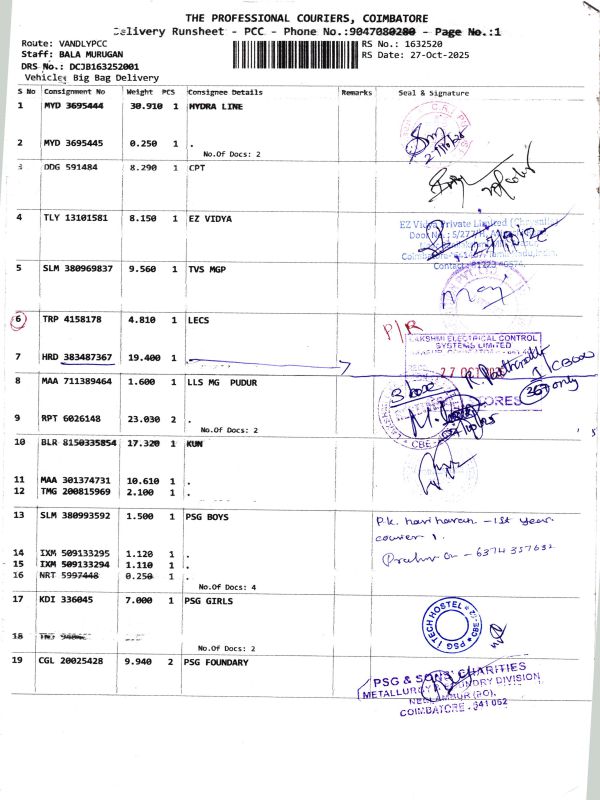 THE PROFESSIONAL COURIERS, COIMBATORE
Delivery Runsheet - PCC - Phone No.:9047080280 - Page No.:1
Route: VANDLYPCC
RS No.: 1632520
Staff: BALA MURUGAN
RS Date: 27-Oct-2025
DRS No.: DCJB163252001
Vehicle: Big Bag Delivery
S No Consignment No Weight PCS Consignee Details Remarks Seal & Signature
1 MYD 3695444 30.910 1 HYDRA LINE
2 MYD 3695445 0.250 1 .
No.Of Docs: 2
27/10/25
3 DDG 591484 8.290 1 CPT
4 TLY 13101581 8.150 1 EZ VIDYA
EZ Vidya Private Limited (Chennai)
5 SLM 380969837 9.560 1 TVS MGP
6 TRP 4158178 4.810 1 LECS
P/R
LAKSHMI ELECTRICAL CONTROL
SYSTEMS LIMITED
7 HRD 383487367 19.400 1 .
27 OCT
8 MAA 711389464 1.600 1 LLS MG PUDUR
3 box
367 only
STORES
9 RPT 6026148 23.030 2 .
No.Of Docs: 2
10 BLR 8150335854 17.320 1 KUN
11 MAA 301374731 10.610 1 .
12 TMG 200815969 2.100 1 .
13 SLM 380993592 1.500 1 PSG BOYS
P.k. hariharan - 1st Year
courier 1.
14 IXM 509133295 1.120 1 .
- 6374357632
15 IXM 509133294 1.110 1 .
16 NRT 5997448 0.250 1 .
No.Of Docs: 4
17 KDI 336045 7.000 1 PSG GIRLS
PSG iTECH HOSTEL
18
No.Of Docs: 2
19 CGL 20025428 9.940 2 PSG FOUNDARY
PSG & SONS' CHARITIES
METALLURGY & FOUNDRY DIVISION
NEELAMBUR (PO),
COIMBATORE - 641 062